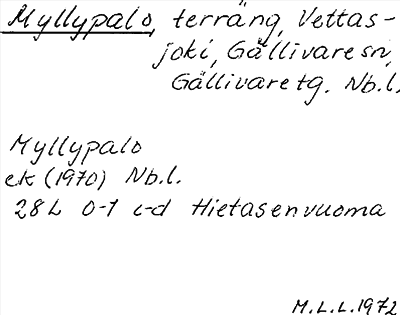 Myllypalo, terräng, Vettas-
joki, Gällivare sn,
Gällivare tg. Nb.l.
Myllypalo
ek (1970) Nb.l.
28L 0-1 c-d Hietasenvuoma
M.L.L.1972